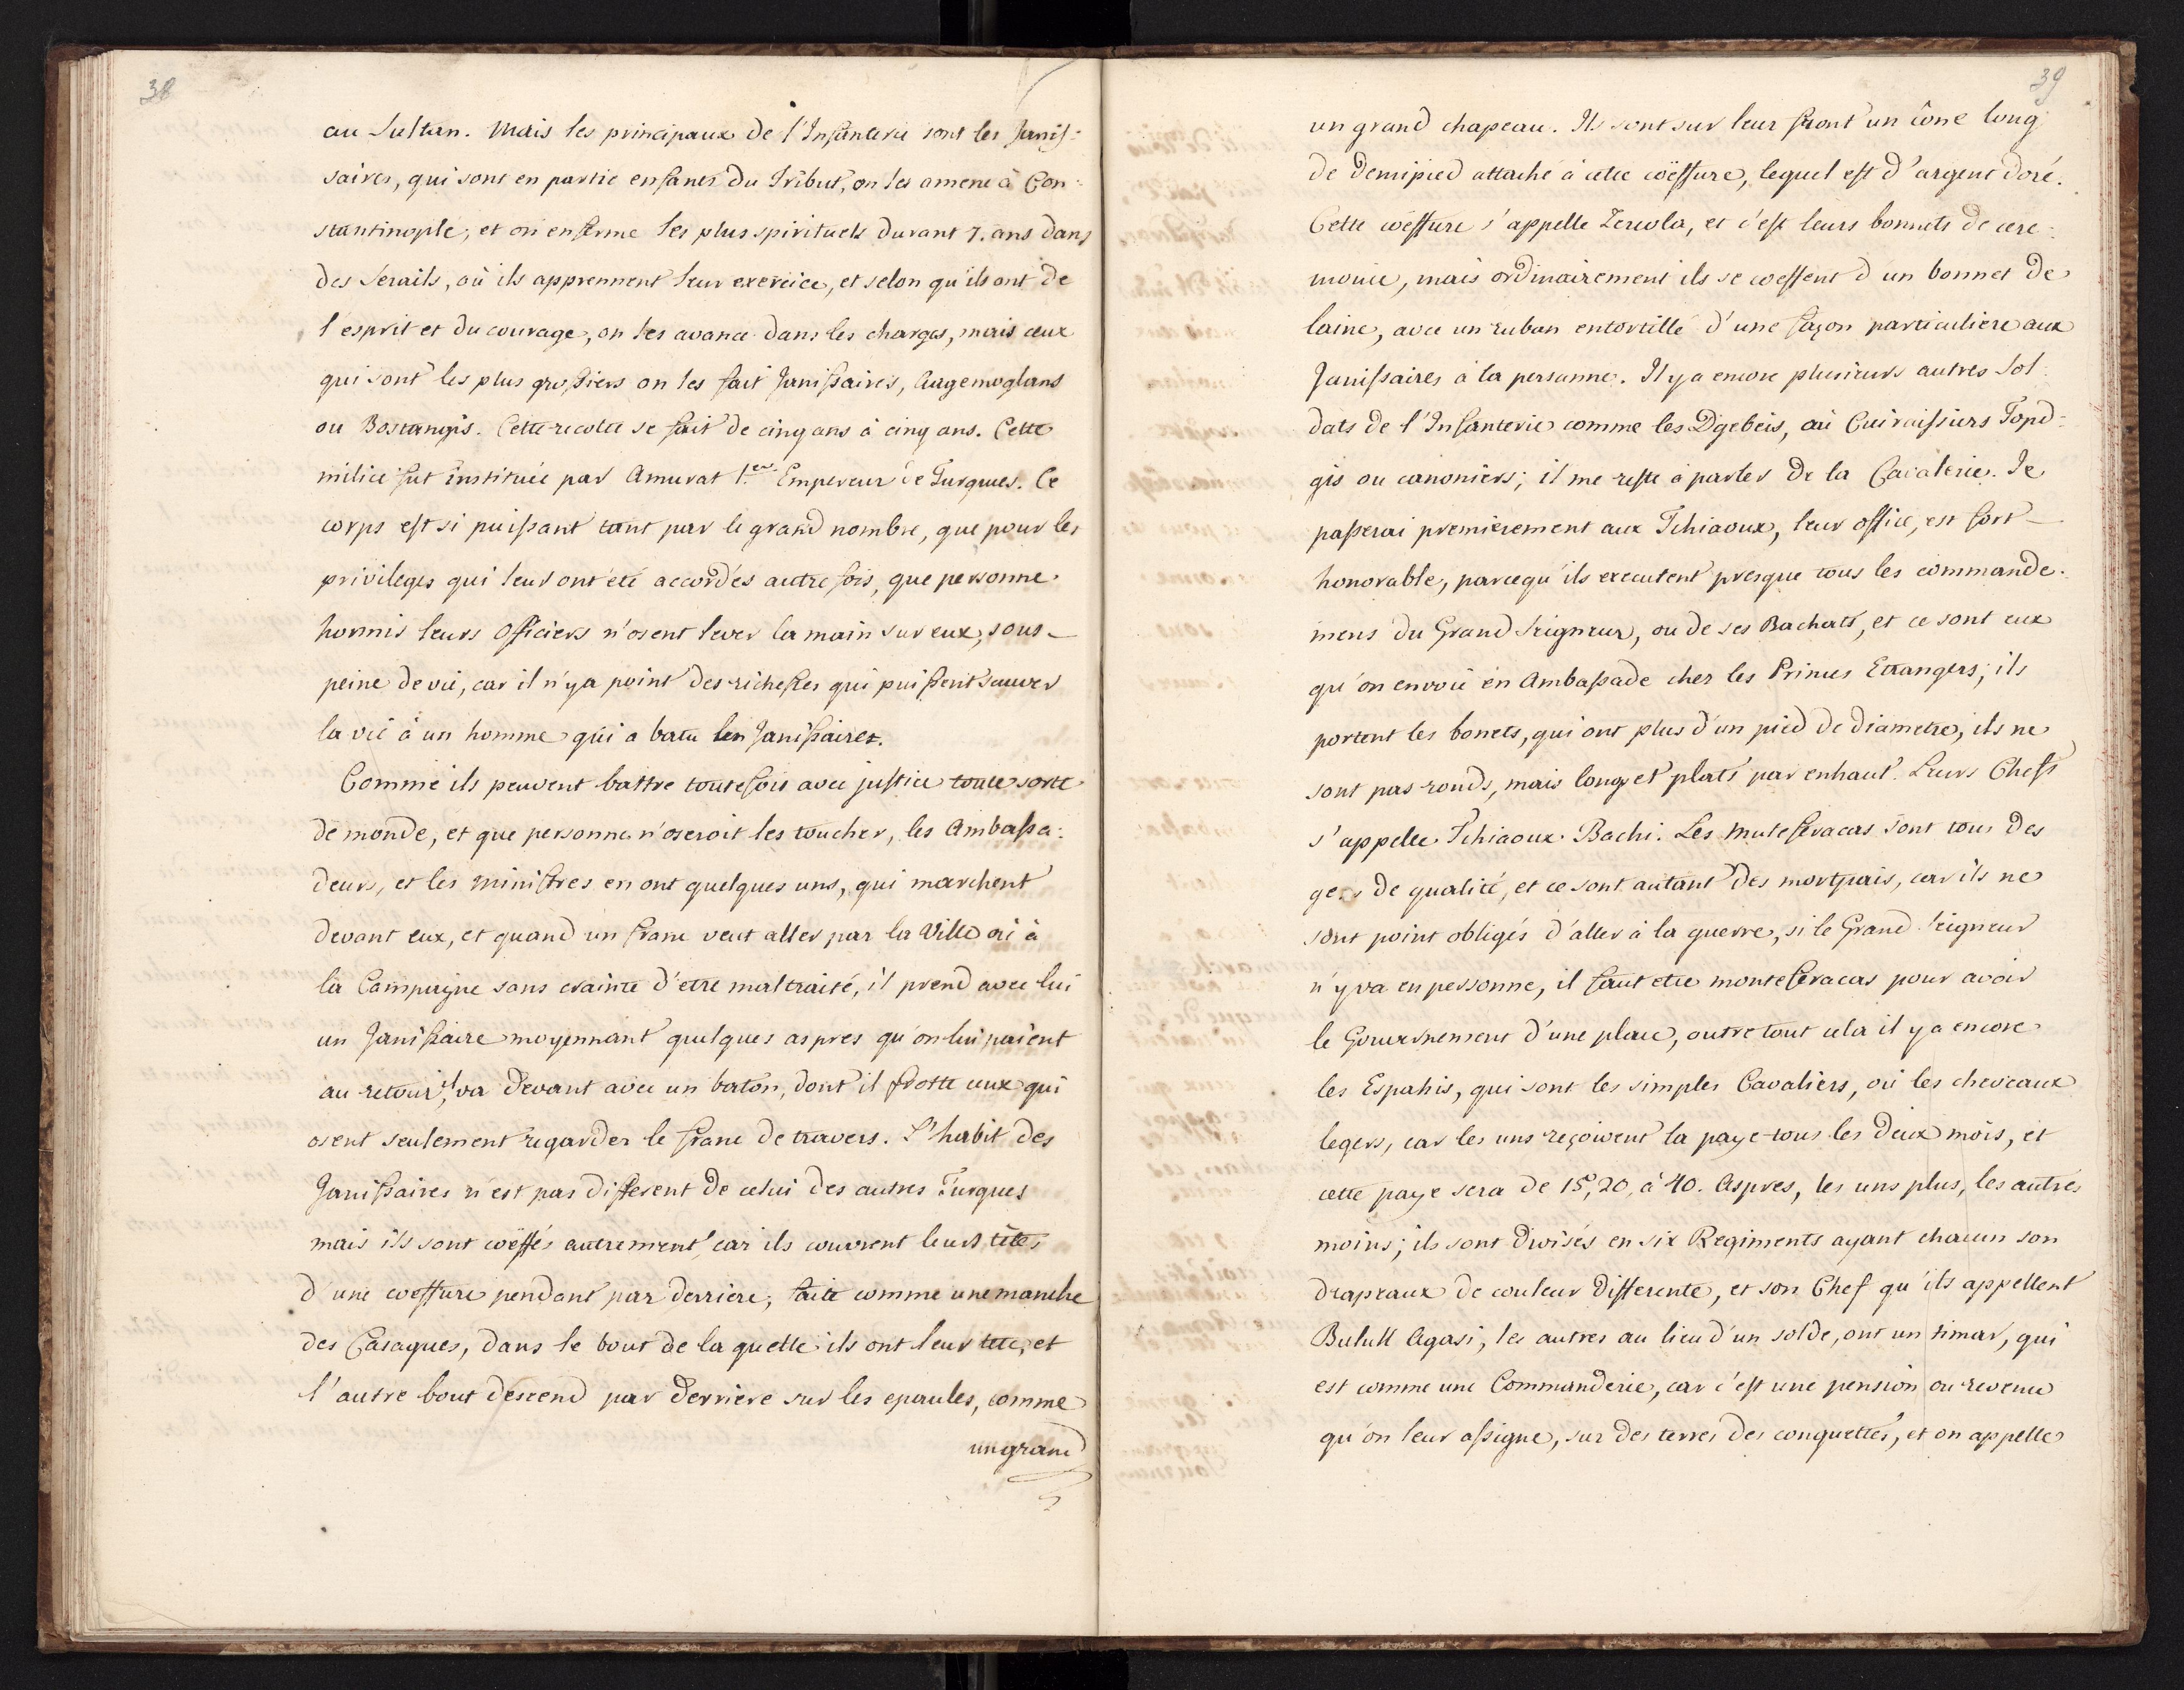 38
au Sultan. Mais les principaux de l'Infanterie sont les Janis-
saires, qui sont en partie enfants du Tribut, on les amene à Con-
stantinople, et on enferme les plus spirituels durant 7. ans dans
des Serails, où ils apprennent leur exercice, et selon qu'ils ont de
l'esprit et du courage, on les avance dans les charges, mais ceux
qui sont les plus grossiers on les fait Janissaires, Augemoglans
ou Bostangis. Cette recolte se fait de cinq ans à cinq ans. Cette
milice fut instituée par Amurat 1.er Empereur de Turques. Ce
corps est si puissant tant par le grand nombre, que pour les
privileges qui leur ont été accordés autre fois, que personne
hormis leurs Officiers n'osent lever la main sur eux, sous
peine de vie, car il n'y a point des richesses qui puissent sauver
la vie à un homme qui a batu les Janissaires.
Comme ils peuvent battre toutefois avec justice toute sorte
de monde, et que personne n'oseroit les toucher, les Ambassa-
deurs, et les Ministres en ont quelques uns, qui marchent
devant eux, et quand un franc veut aller par la Ville où à
la Campagne sans crainte d'etre maltraité, il prend avec lui
un Janissaire moyennant quelques aspres qu'on lui paient
au retour, il va devant avec un baton, dont il frotte ceux qui
osent seulement regarder le franc de travers. L'habit des
Janissaires n'est pas different de celui des autres Turques
mais ils sont coëffés autrement, car ils couvrent leurs têtes
d'une coeffure pendant par derriere, faite comme une manche
des Casaques, dans le bout de la quelle ils ont leur tete, et
l'autre bout descend par derriere sur les epaules, comme
un grand
39
un grand chapeau. Ils sont sur leur front un cône long
de demipied attaché à cette coëffure, lequel est d'argent doré.
Cette coëffure s'appelle Zercola, et c'est leurs bonnets de cere-
monie, mais ordinairement ils se coeffent d'un bonnet de
laine, avec un ruban entortillé d'une façon particuliere aux
Janissaires à la personne. Il y a encore plusieurs autres Sol-
dats de l'Infanterie comme les Dgebeis, où Cuirassiers Topd-
gis ou canoniers; il me reste à parler de la Cavalerie. Je
passerai premierement aux Tchiaoux, leur office, est fort
honorable, parcequ'ils executent presque tous les commande-
mens du Grand Seigneur, ou de ses Bachats, et ce sont eux
qu'on envoie en Ambassade chez les Princes Etrangers; ils
portent les bonets, qui ont plus d'un pied de diametre, ils ne
sont pas ronds, mais longs et plats par enhaut. Leurs Chefs
s'appelle Tchiaoux Bachi. Les Muteferacas sont tous des
gens de qualité, et ce sont autant des mortpais, car ils ne
sont point obligés d'aller à la guerre, si le Grand Seigneur
n'y va en personne, il faut etre monteferacas pour avoir
le Gouvernement d'une place, outre tout cela il y a encore
les Espahis, qui sont les simples Cavaliers, où les cheveaux
legers, car les uns reçoivent la paye tous les deux mois, et
cette paye sera de 15, 20, à 40. Aspres, les uns plus, les autres
moins; ils sont divisés en six Regiments ayant chacun son
drapeaux de couleur differente, et son Chef qu'ils appellent
Bulull Agasi, les autres au lieu d'un solde, ont un timar, qui
est comme une Commanderie, car c'est une pension ou revenu
qu'on leur assigne, sur des terres des conquettes, et on appelle